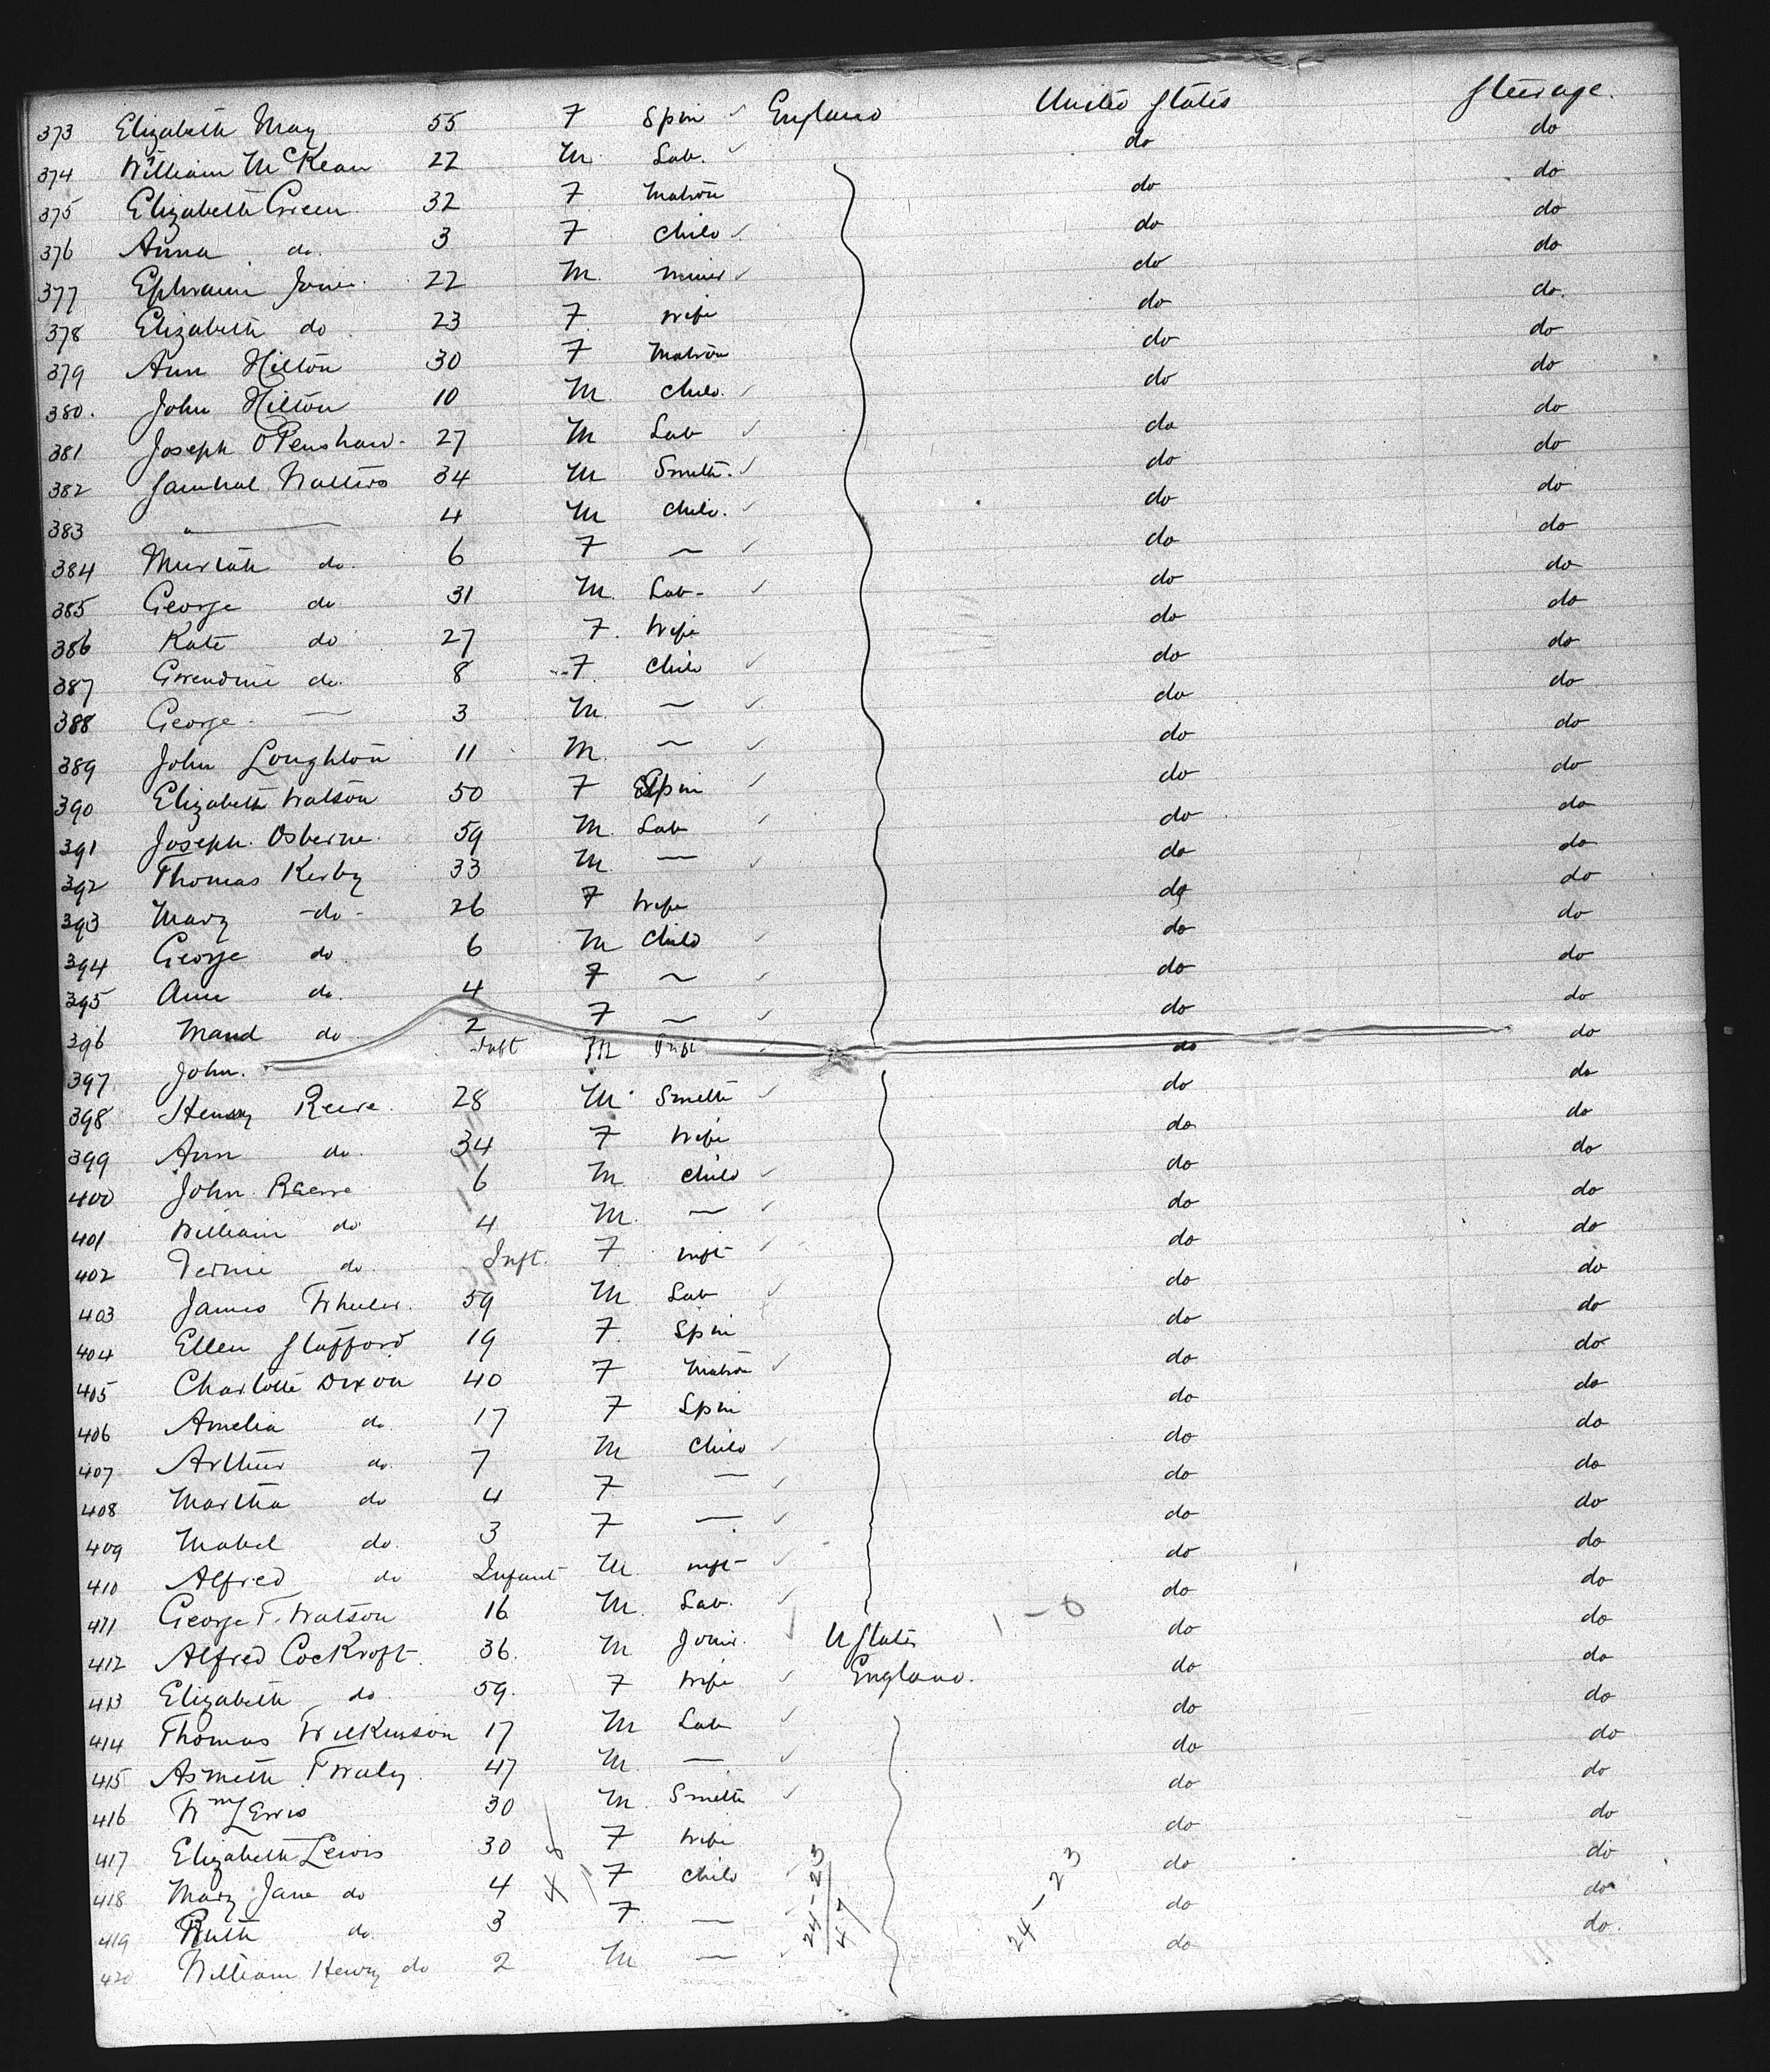 373 Elizabeth May 55 F Spin England United States Steerage.
374 William McKean 22 M. Lab. do do
375 Elizabeth Green 32 F Matron do do
376 Anna do. 3 F Child do do
377 Ephraim Jones 22 M miner do do
378 Elizabeth do 23 F. wife do do.
379 Ann Hilton 30 F Matron do do
380. John Hilton 10 M. Child. do do
381 Joseph OPenshaw 27 M Lab do do
382 Walters 34 M Smith. do do
383 " — 4 M Child. do do
384 do. 6 F — do do
385 George do 31 M. Lab- do do
386 Kate do 27 F. Wife do do
387 do. 8 F. Child do do
388 George — 3 M. — do do
389 John Loughton 11 M. — do do
390 Elizabeth Watson 50 F Spin do do
391 Joseph Osberne 59 M. Lab do do
392 Thomas Kerby 33 M. — do do
393 Mary -do- 26 F Wife do do
394 George do 6 M Child do do
395 Ann do. 4 F — do do
396 Maud do 2 F — do do
397 John. Inft M Inft do do
398 Henry Reeve 28 M. Smith do do
399 Ann do. 34 F Wife do do
400 John 6 M Child do do
401 William do 4 M. — do do
402 do. Inft. F. inft do do
403 James Wheeler. 59 M Lab do do
404 Ellen Stafford 19 F. Spin do do
405 Charlotte Dixon 40 F Matron do do
406 Amelia do 17 F Spin do do
407 Arthur do 7 M Child do do
408 Martha do 4 F — do do
409 Mabel do. 3 F — do do
410 Alfred do Infant M inft do do
411 George T. Watson 16 M. Lab. do do
412 Alfred CocKroft 36. M Joiner. U States 1 - 0 do do
413 Elizabeth do. 59. F Wife England. do do
414 Thomas Wilkinson 17 M Lab do do
415 47 M. — do do
416 Wm Lewis 30 M. Smith do do
417 Elizabeth Lewis 30 F Wife do do
418 Mary Jane do 4 F Child 24-23 24-23 do do
419 Ruth do. 3 F. — 47 do do
420 William Henry do 2 M — do do.